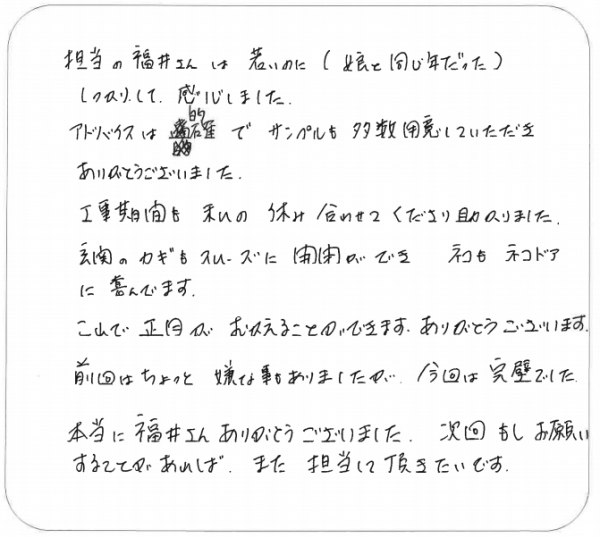 担当の福井さんは若いのに(娘と同じ年だった)
しっかりして、感心しました。
アドバイスは的確でサンプルも多数用意していただき
ありがとうございました。
工事期間も私の休み合わせてくださり助かりました。
玄関のカギもスムーズに開閉ができ ネコもネコドア
に喜んでます。
これで正月がむかえることができます。ありがとうございます。
前回はちょっと嫌な事もありましたが、今回は完璧でした。
本当に福井さんありがとうございました。次回もしお願い
することがあれば、また担当して頂きたいです。